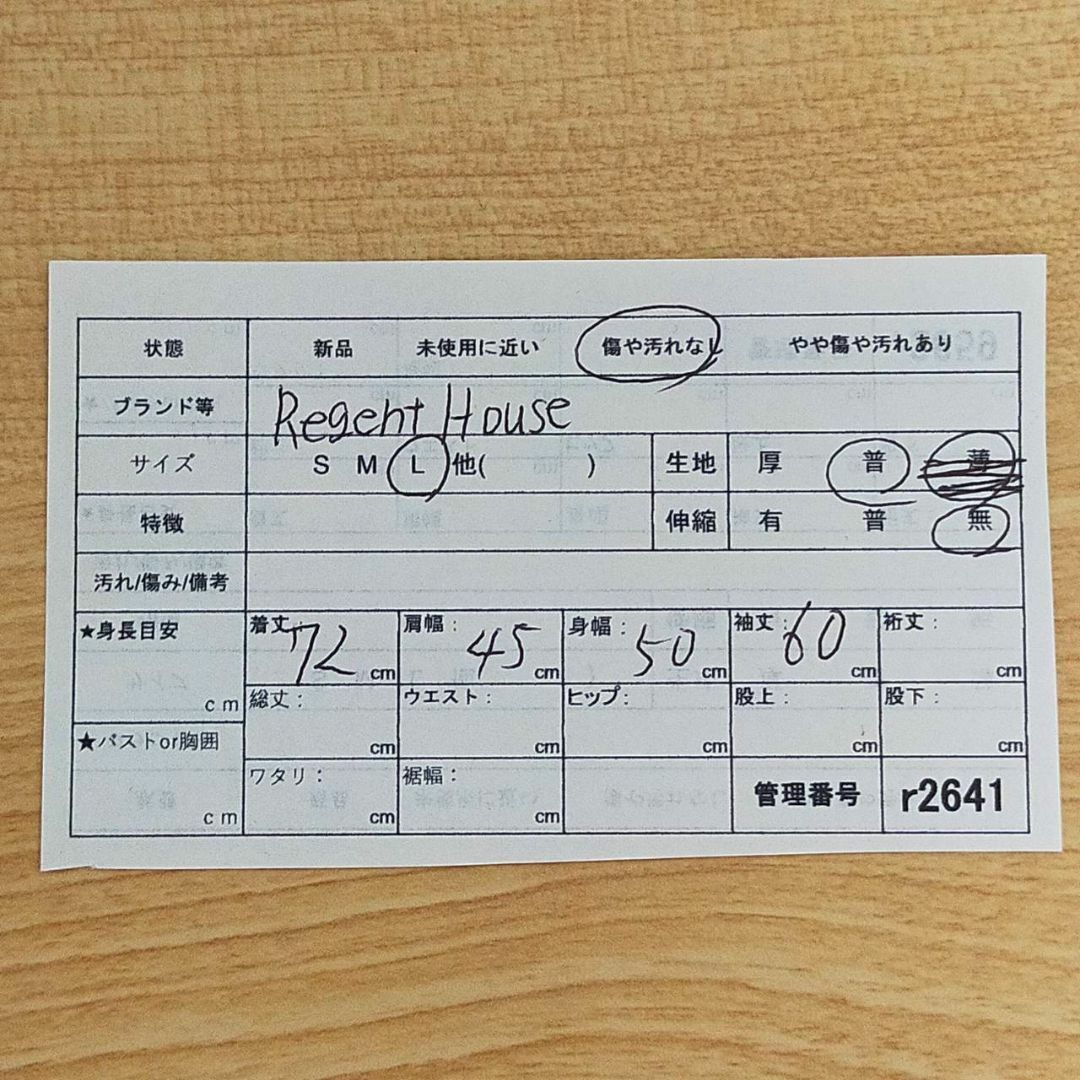 状態 新品 未使用に近い 傷や汚れなし やや傷や汚れあり
ブランド等 Regent House
サイズ S M L 他( ) 生地 厚 普 薄
特徴 伸縮 有 普 無
汚れ/傷み/備考
★身長目安 cm 着丈: 72 cm 肩幅: 45 cm 身幅: 50 cm 袖丈: 60 cm 裄丈: cm
総丈: cm ウエスト: cm ヒップ: cm 股上: cm 股下: cm
★バストor胸囲 cm ワタリ: cm 裾幅: cm 管理番号 r2641